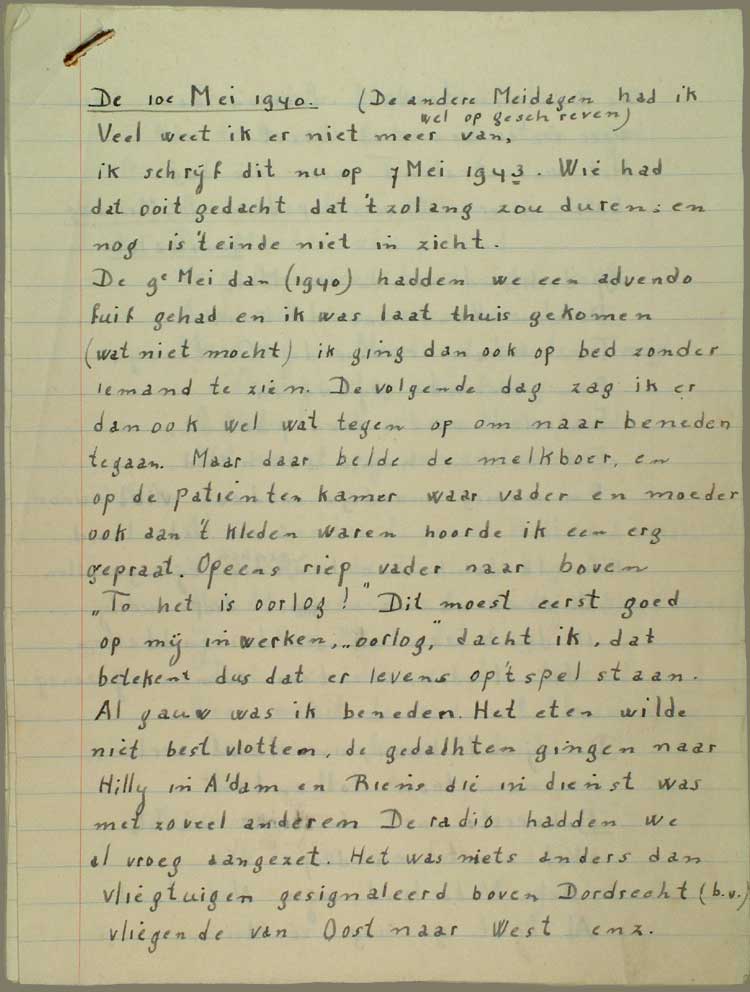 De 10e Mei 1940. (De andere Meidagen had ik
wel op geschreven)
Veel weet ik er niet meer van,
ik schrijf dit nu op 7 Mei 1943. Wie had
dat ooit gedacht dat 't zolang zou duren; en
nog is 't einde niet in zicht.
De 9e Mei dan (1940) hadden we een advendo
fuif gehad en ik was laat thuis gekomen
(wat niet mocht) ik ging dan ook op bed zonder
iemand te zien. De volgende dag zag ik er
dan ook wel wat tegen op om naar beneden
tegaan. Maar daar belde de melkboer, en
op de patiënten kamer waar vader en moeder
ook aan 't kleden waren hoorde ik een erg
gepraat. Opeens riep vader naar boven
„To het is oorlog!" Dit moest eerst goed
op mij inwerken, „oorlog," dacht ik, dat
betekent dus dat er levens op 't spel staan.
Al gauw was ik beneden. Het eten wilde
niet best vlotten, de gedachten gingen naar
Hilly in A'dam en Riens die in dienst was
met zoveel anderen De radio hadden we
al vroeg aangezet. Het was niets anders dan
vliegtuigen gesignaleerd boven Dordrecht (b.v.)
vliegende van Oost naar West enz.